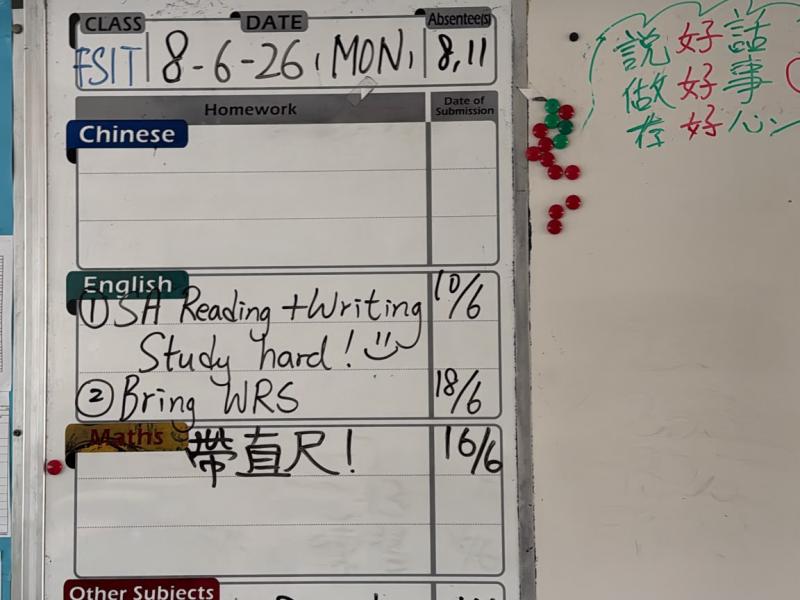 CLASS DATE Absentee(s)
FSIT 8-6-26 (MON) 8, 11
Homework Date of Submission
Chinese
English
① SA Reading + Writing 10/6
Study hard! :)
② Bring WRS 18/6
Maths 帶直尺! 16/6
Other Subjects
說好話
做好事
存好心